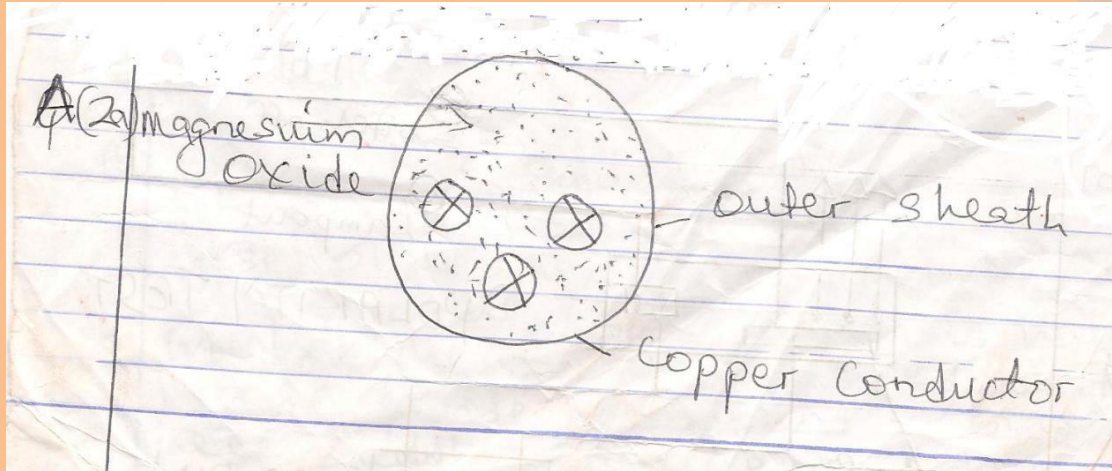 A(2a) magnesium
oxide
outer sheath
Copper Conductor